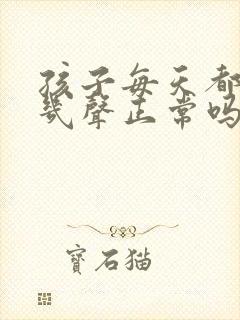 孩子每天都
几聲正常吗
寶石猫